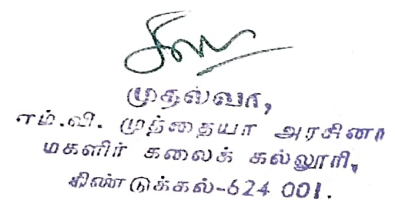 முதல்வர்,
எம்.வி. முத்தையா அரசினர்
மகளிர் கலைக் கல்லூரி,
திண்டுக்கல்-624 001.